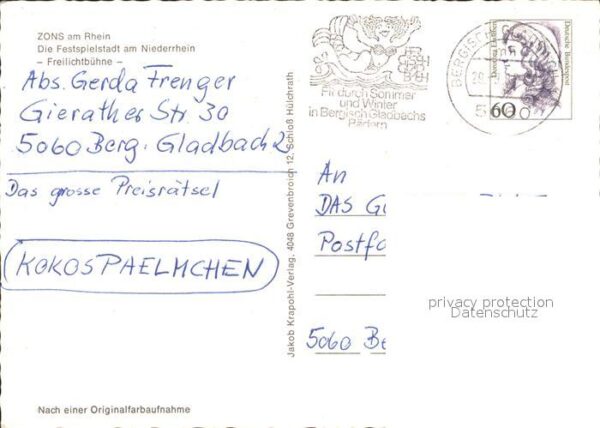 ZONS am Rhein
Die Festspielstadt am Niederrhein
– Freilichtbühne –
Abs. Gerda Frenger
Gierather Str. 30
5060 Berg. Gladbach 2
Das grosse Preisrätsel
KOKOSPAELMCHEN
Nach einer Originalfarbaufnahme
Jakob Krapohl-Verlag, 4048 Grevenbroich 12, Schloß Hülchrath
Fit durch Sommer
und Winter
in Bergisch Gladbachs
Bädern
BERGISCH GLADBACH
5060
Deutsche Bundespost
60
An
DAS G
Postfa
5060 Be
privacy protection
Datenschutz